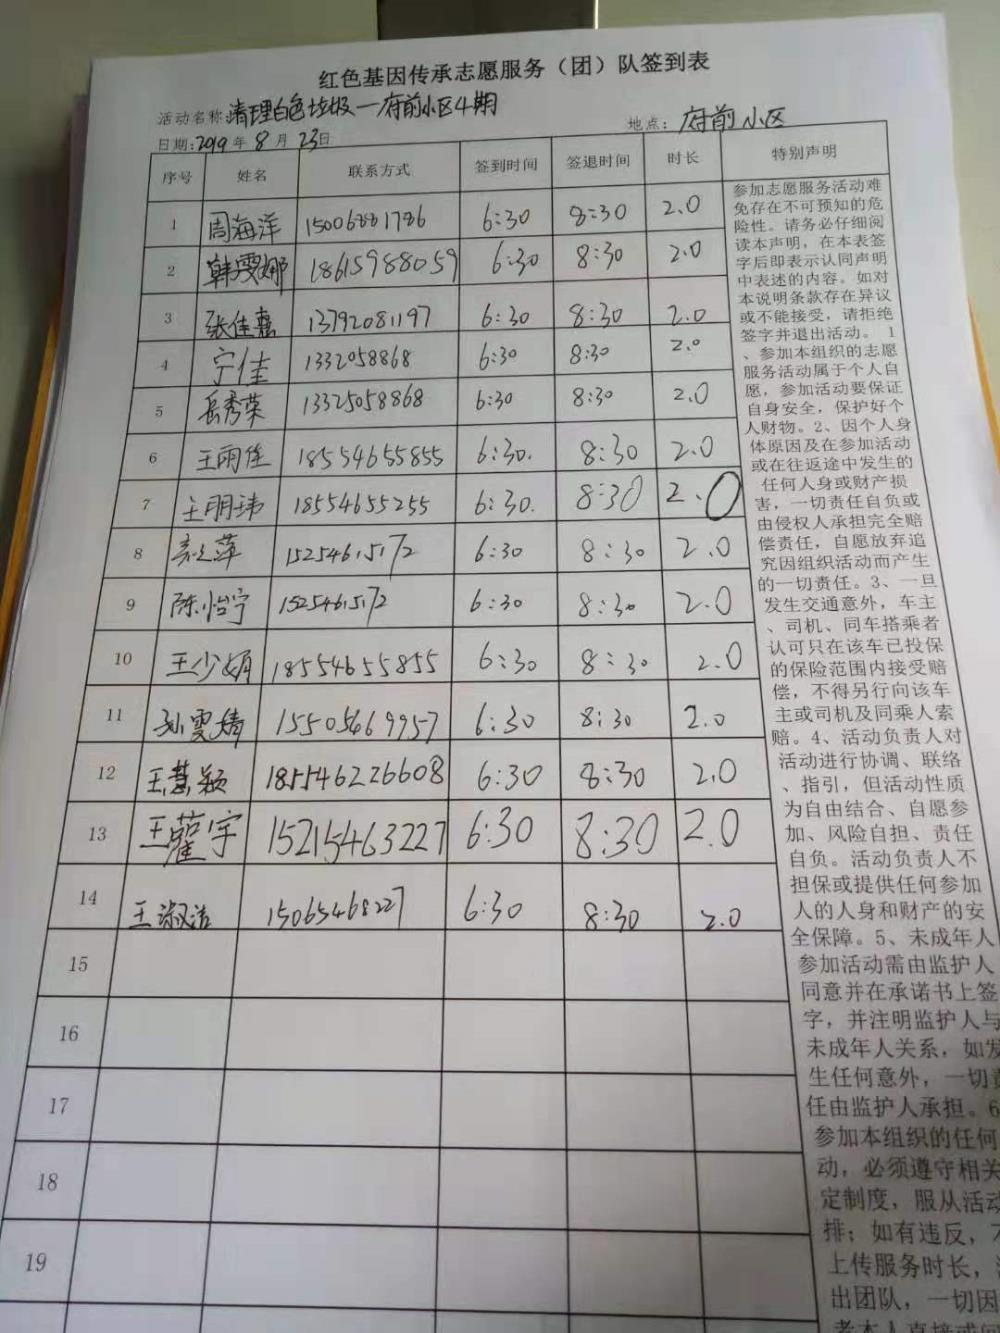 红色基因传承志愿服务（团）队签到表
活动名称:清理白色垃圾—府前小区4期 地点：府前小区
日期:2019年8月23日
序号 姓名 联系方式 签到时间 签退时间 时长 特别声明
1 周海洋 15006881786 6:30 8:30 2.0
2 韩雯娜 18615988059 6:30 8:30 2.0
3 张佳嘉 13792081197 6:30 8:30 2.0
4 宁佳 1332058868 6:30 8:30 2.0
5 岳秀荣 13325058868 6:30 8:30 2.0
6 王雨佳 18554655855 6:30. 8:30 2.0
7 王明玮 18554655255 6:30. 8:30 2.0
8 15254615172 6:30 8:30 2.0
9 陈怡宁 15254615172 6:30 8:30 2.0
10 王少娟 18554655855 6:30 8:30 2.0
11 孙雯婧 15505469957 6:30 8:30 2.0
12 王慧颖 185546226608 6:30 8:30 2.0
13 王宇 15215463227 6:30 8:30 2.0
14 王淑洁 15065468227 6:30 8:30 2.0
15
16
17
18
19
参加志愿服务活动难
免存在不可预知的危
险性。请务必仔细阅
读本声明，在本表签
字后即表示认同声明
中表述的内容。如对
本说明条款存在异议
或不能接受，请拒绝
签字并退出活动。 1
、参加本组织的志愿
服务活动属于个人自
愿，参加活动要保证
自身安全，保护好个
人财物。2、因个人身
体原因及在参加活动
或在往返途中发生的
任何人身或财产损
害，一切责任自负或
由侵权人承担完全赔
偿责任，自愿放弃追
究因组织活动而产生
的一切责任。3、一旦
发生交通意外，车主
、司机、同车搭乘者
认可只在该车已投保
的保险范围内接受赔
偿，不得另行向该车
主或司机及同乘人索
赔。4、活动负责人对
活动进行协调、联络
、指引，但活动性质
为自由结合、自愿参
加、风险自担、责任
自负。活动负责人不
担保或提供任何参加
人的人身和财产的安
全保障。5、未成年人
参加活动需由监护人
同意并在承诺书上签
字，并注明监护人与
未成年人关系，如发
生任何意外，一切责
任由监护人承担。6
参加本组织的任何
动，必须遵守相关
定制度，服从活动
排；如有违反，不
上传服务时长，
出团队，一切因